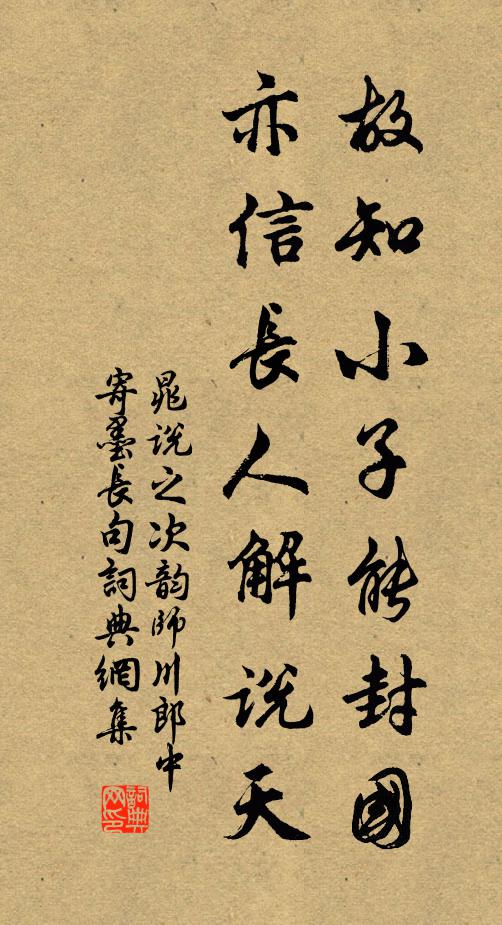 故知小子能封國
亦信長人解說天
晁說之次韵師川郎中
寄墨長句詞典網集
詞典網印